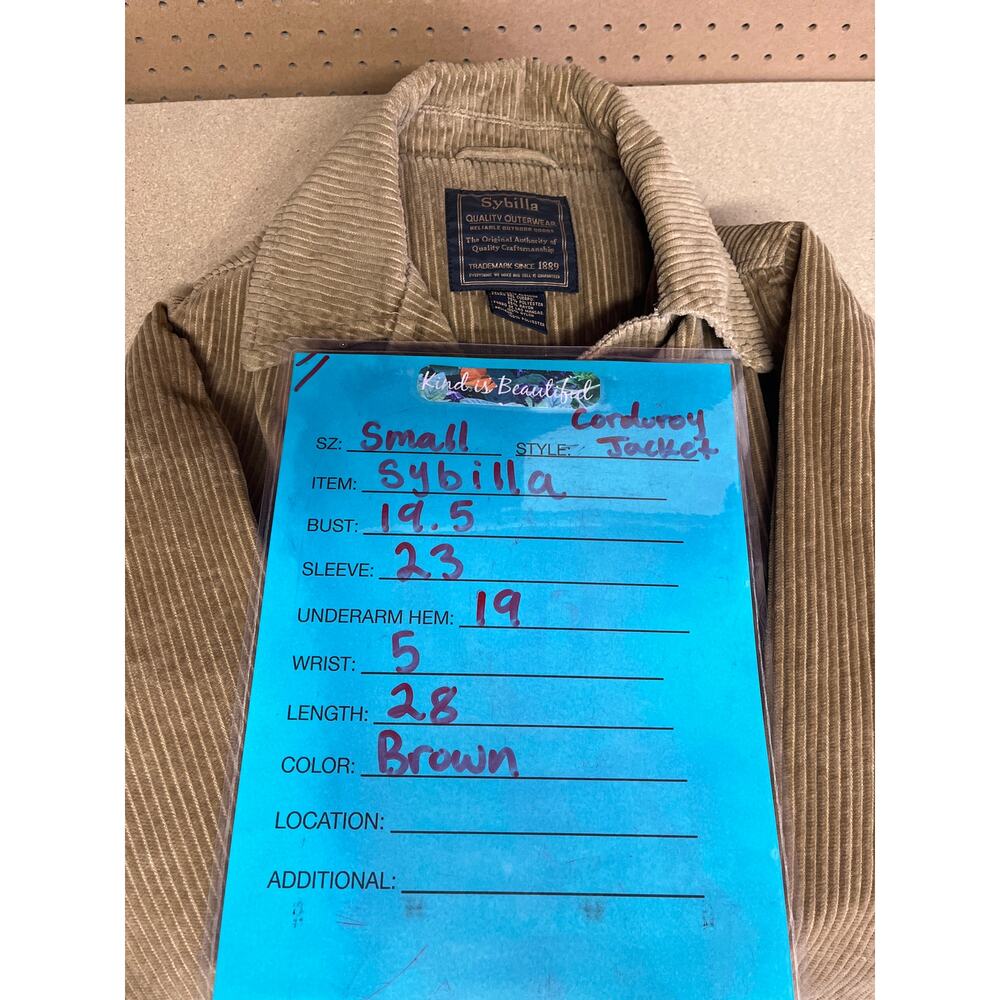 Sybilla
QUALITY OUTERWEAR
RELIABLE OUTDOOR GOODS
The Original Authority of
Quality Craftsmanship
TRADEMARK SINCE 1889
EVERYTHING WE MAKE AND SELL IS GUARANTEED
Kind is Beautiful
SZ: Small STYLE: Corduroy
Jacket
ITEM: Sybilla
BUST: 19.5
SLEEVE: 23
UNDERARM HEM: 19
WRIST: 5
LENGTH: 28
COLOR: Brown
LOCATION:
ADDITIONAL: